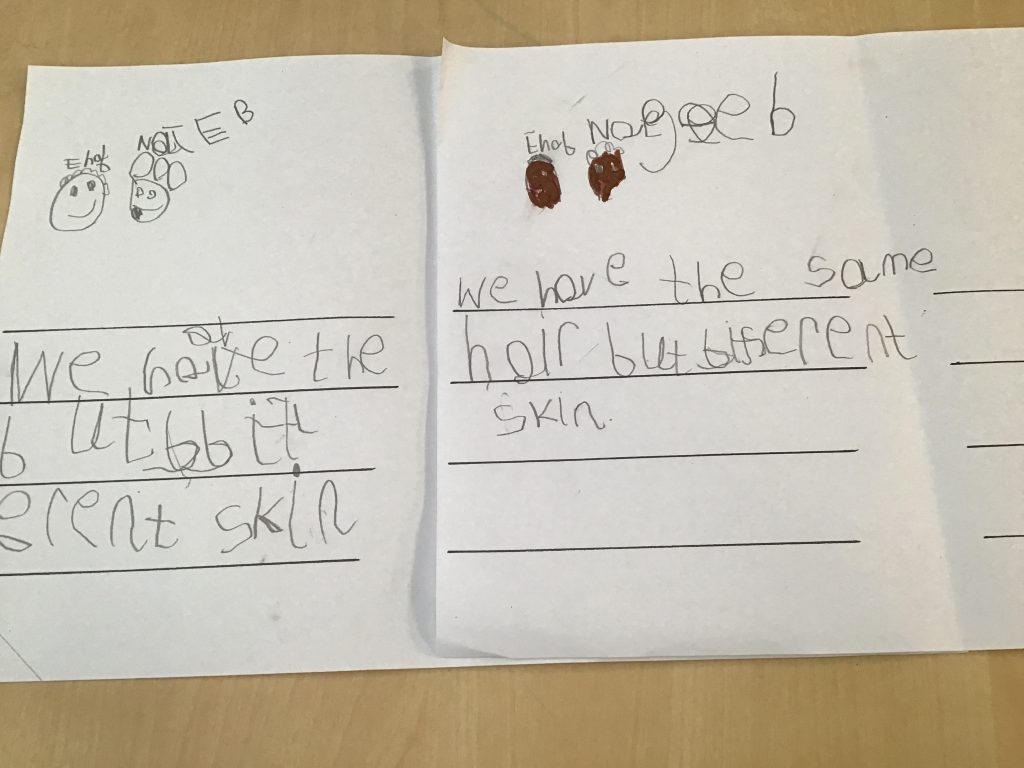 Ehab
We have the
but
erent skin
Ehab Nageeb
we have the same
hair but different
skin.